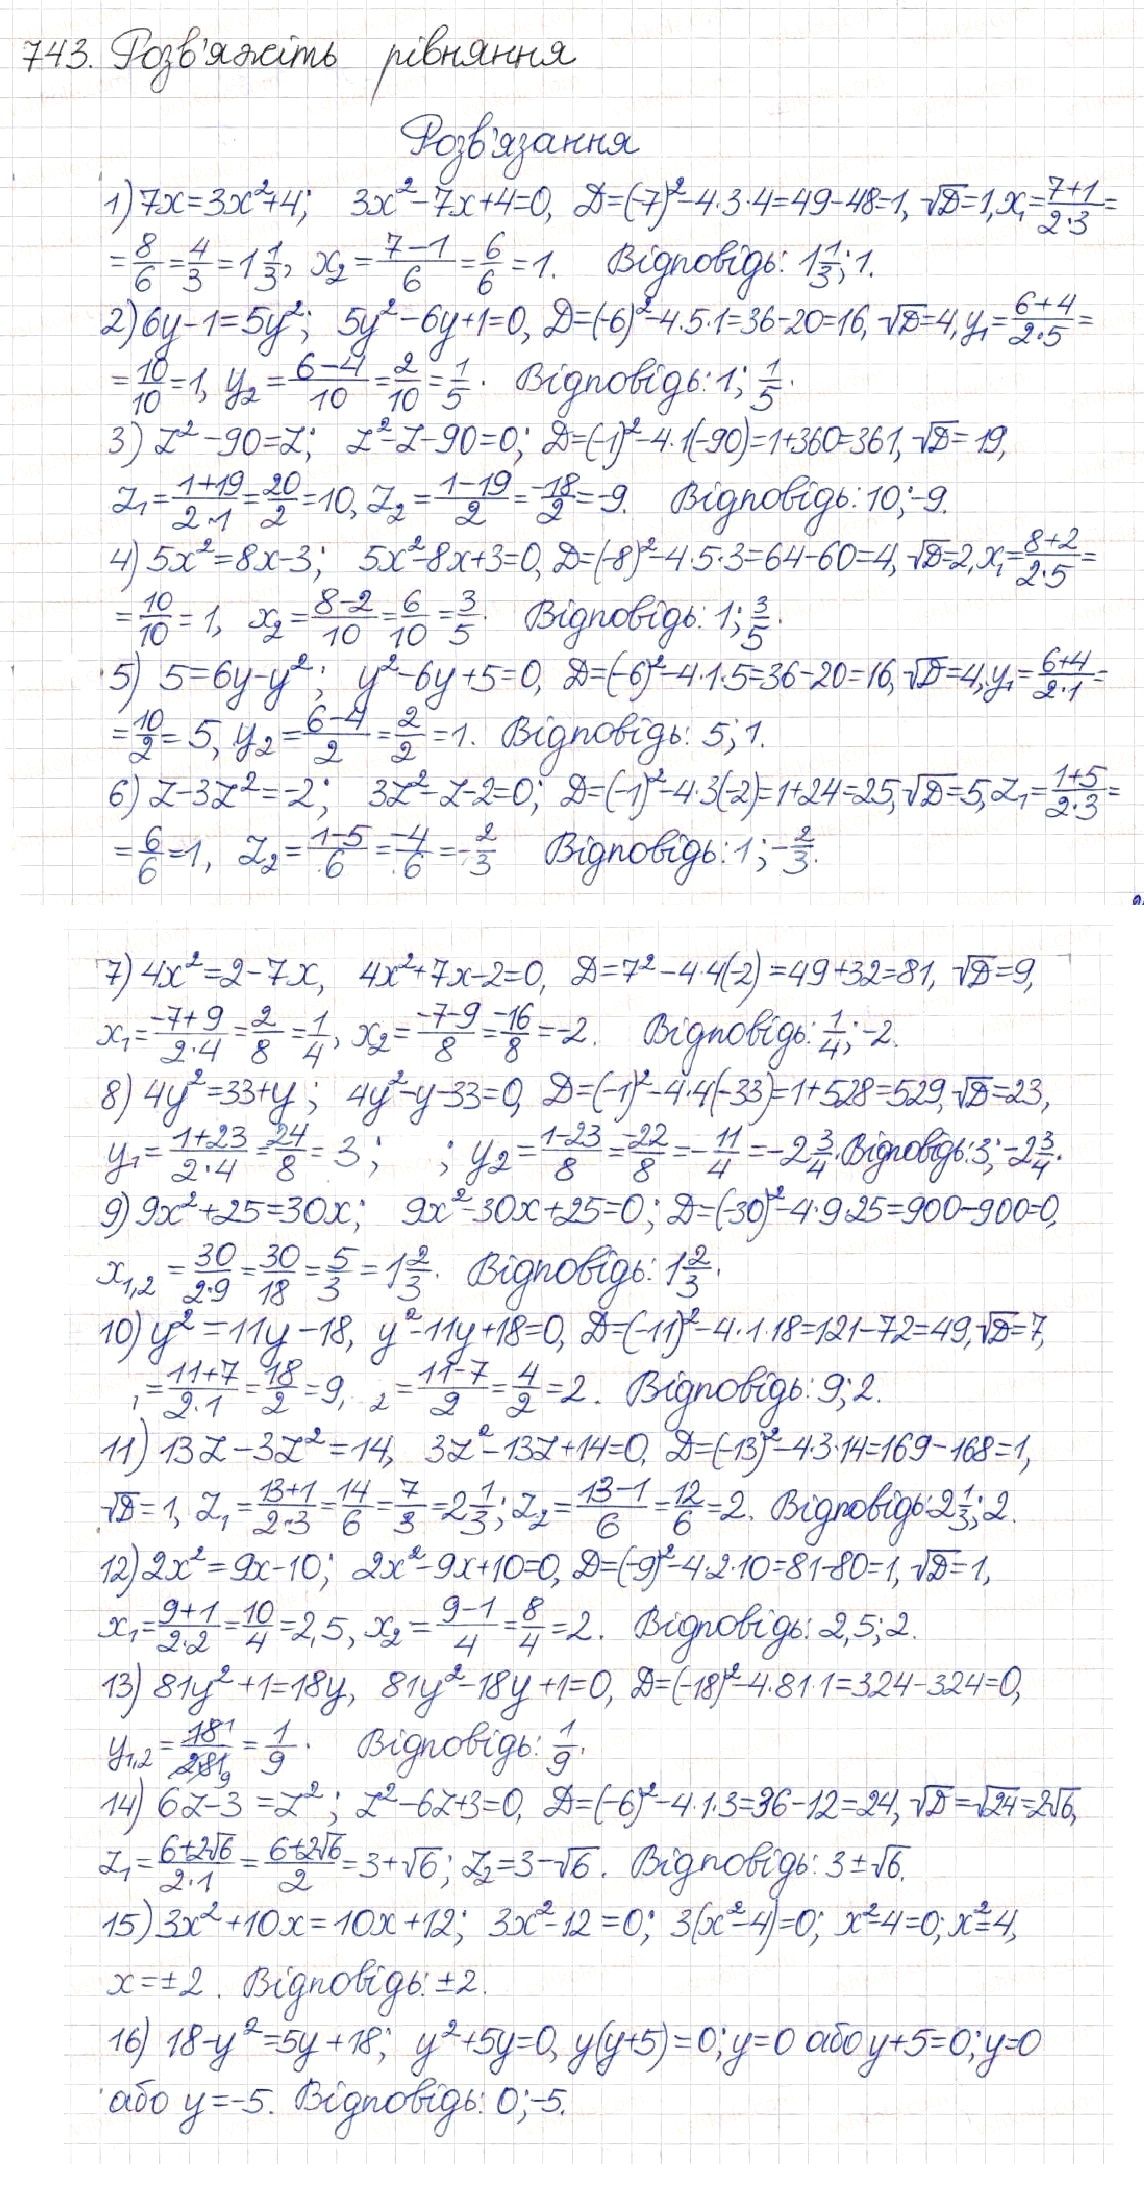 743. Розв'яжіть рівняння
Розв'язання
1) 7x=3x²+4; 3x²-7x+4=0, D=(-7)²-4·3·4=49-48=1, √D=1, x₁=(7+1)/(2·3)=
=8/6=4/3=1 1/3, x₂=(7-1)/6=6/6=1. Відповідь: 1 1/3; 1.
2) 6y-1=5y²; 5y²-6y+1=0, D=(-6)²-4·5·1=36-20=16, √D=4, y₁=(6+4)/(2·5)=
=10/10=1, y₂=(6-4)/10=2/10=1/5. Відповідь: 1; 1/5.
3) z²-90=z; z²-z-90=0; D=(-1)²-4·1(-90)=1+360=361, √D=19,
z₁=(1+19)/(2·1)=20/2=10, z₂=(1-19)/2=-18/2=-9. Відповідь: 10; -9.
4) 5x²=8x-3; 5x²-8x+3=0, D=(-8)²-4·5·3=64-60=4, √D=2, x₁=(8+2)/(2·5)=
=10/10=1, x₂=(8-2)/10=6/10=3/5. Відповідь: 1; 3/5.
5) 5=6y-y²; y²-6y+5=0, D=(-6)²-4·1·5=36-20=16, √D=4, y₁=(6+4)/(2·1)=
=10/2=5, y₂=(6-4)/2=2/2=1. Відповідь: 5; 1.
6) z-3z²=-2; 3z²-z-2=0; D=(-1)²-4·3(-2)=1+24=25, √D=5, z₁=(1+5)/(2·3)=
=6/6=1, z₂=(1-5)/6=-4/6=-2/3 Відповідь: 1; -2/3.
7) 4x²=2-7x, 4x²+7x-2=0, D=7²-4·4(-2)=49+32=81, √D=9,
x₁=(-7+9)/(2·4)=2/8=1/4, x₂=(-7-9)/8=-16/8=-2. Відповідь: 1/4; -2.
8) 4y²=33+y; 4y²-y-33=0, D=(-1)²-4·4(-33)=1+528=529, √D=23,
y₁=(1+23)/(2·4)=24/8=3; ; y₂=(1-23)/8=-22/8=-11/4=-2 3/4. Відповідь: 3; -2 3/4.
9) 9x²+25=30x; 9x²-30x+25=0; D=(-30)²-4·9·25=900-900=0,
x₁,₂=30/(2·9)=30/18=5/3=1 2/3. Відповідь: 1 2/3.
10) y²=11y-18, y²-11y+18=0, D=(-11)²-4·1·18=121-72=49, √D=7,
₁=(11+7)/(2·1)=18/2=9, ₂=(11-7)/2=4/2=2. Відповідь: 9; 2.
11) 13z-3z²=14, 3z²-13z+14=0, D=(-13)²-4·3·14=169-168=1,
√D=1, z₁=(13+1)/(2·3)=14/6=7/3=2 1/3; z₂=(13-1)/6=12/6=2. Відповідь: 2 1/3; 2.
12) 2x²=9x-10; 2x²-9x+10=0, D=(-9)²-4·2·10=81-80=1, √D=1,
x₁=(9+1)/(2·2)=10/4=2,5, x₂=(9-1)/4=8/4=2. Відповідь: 2,5; 2.
13) 81y²+1=18y, 81y²-18y+1=0, D=(-18)²-4·81·1=324-324=0,
y₁,₂=18¹/(2·81₉)=1/9. Відповідь: 1/9.
14) 6z-3=z²; z²-6z+3=0, D=(-6)²-4·1·3=36-12=24, √D=√24=2√6,
z₁=(6±2√6)/(2·1)=(6±2√6)/2=3+√6; z₂=3-√6. Відповідь: 3±√6.
15) 3x²+10x=10x+12; 3x²-12=0; 3(x²-4)=0; x²-4=0; x²=4,
x=±2. Відповідь: ±2.
16) 18-y²=5y+18; y²+5y=0, y(y+5)=0; y=0 або y+5=0; y=0
або y=-5. Відповідь: 0; -5.